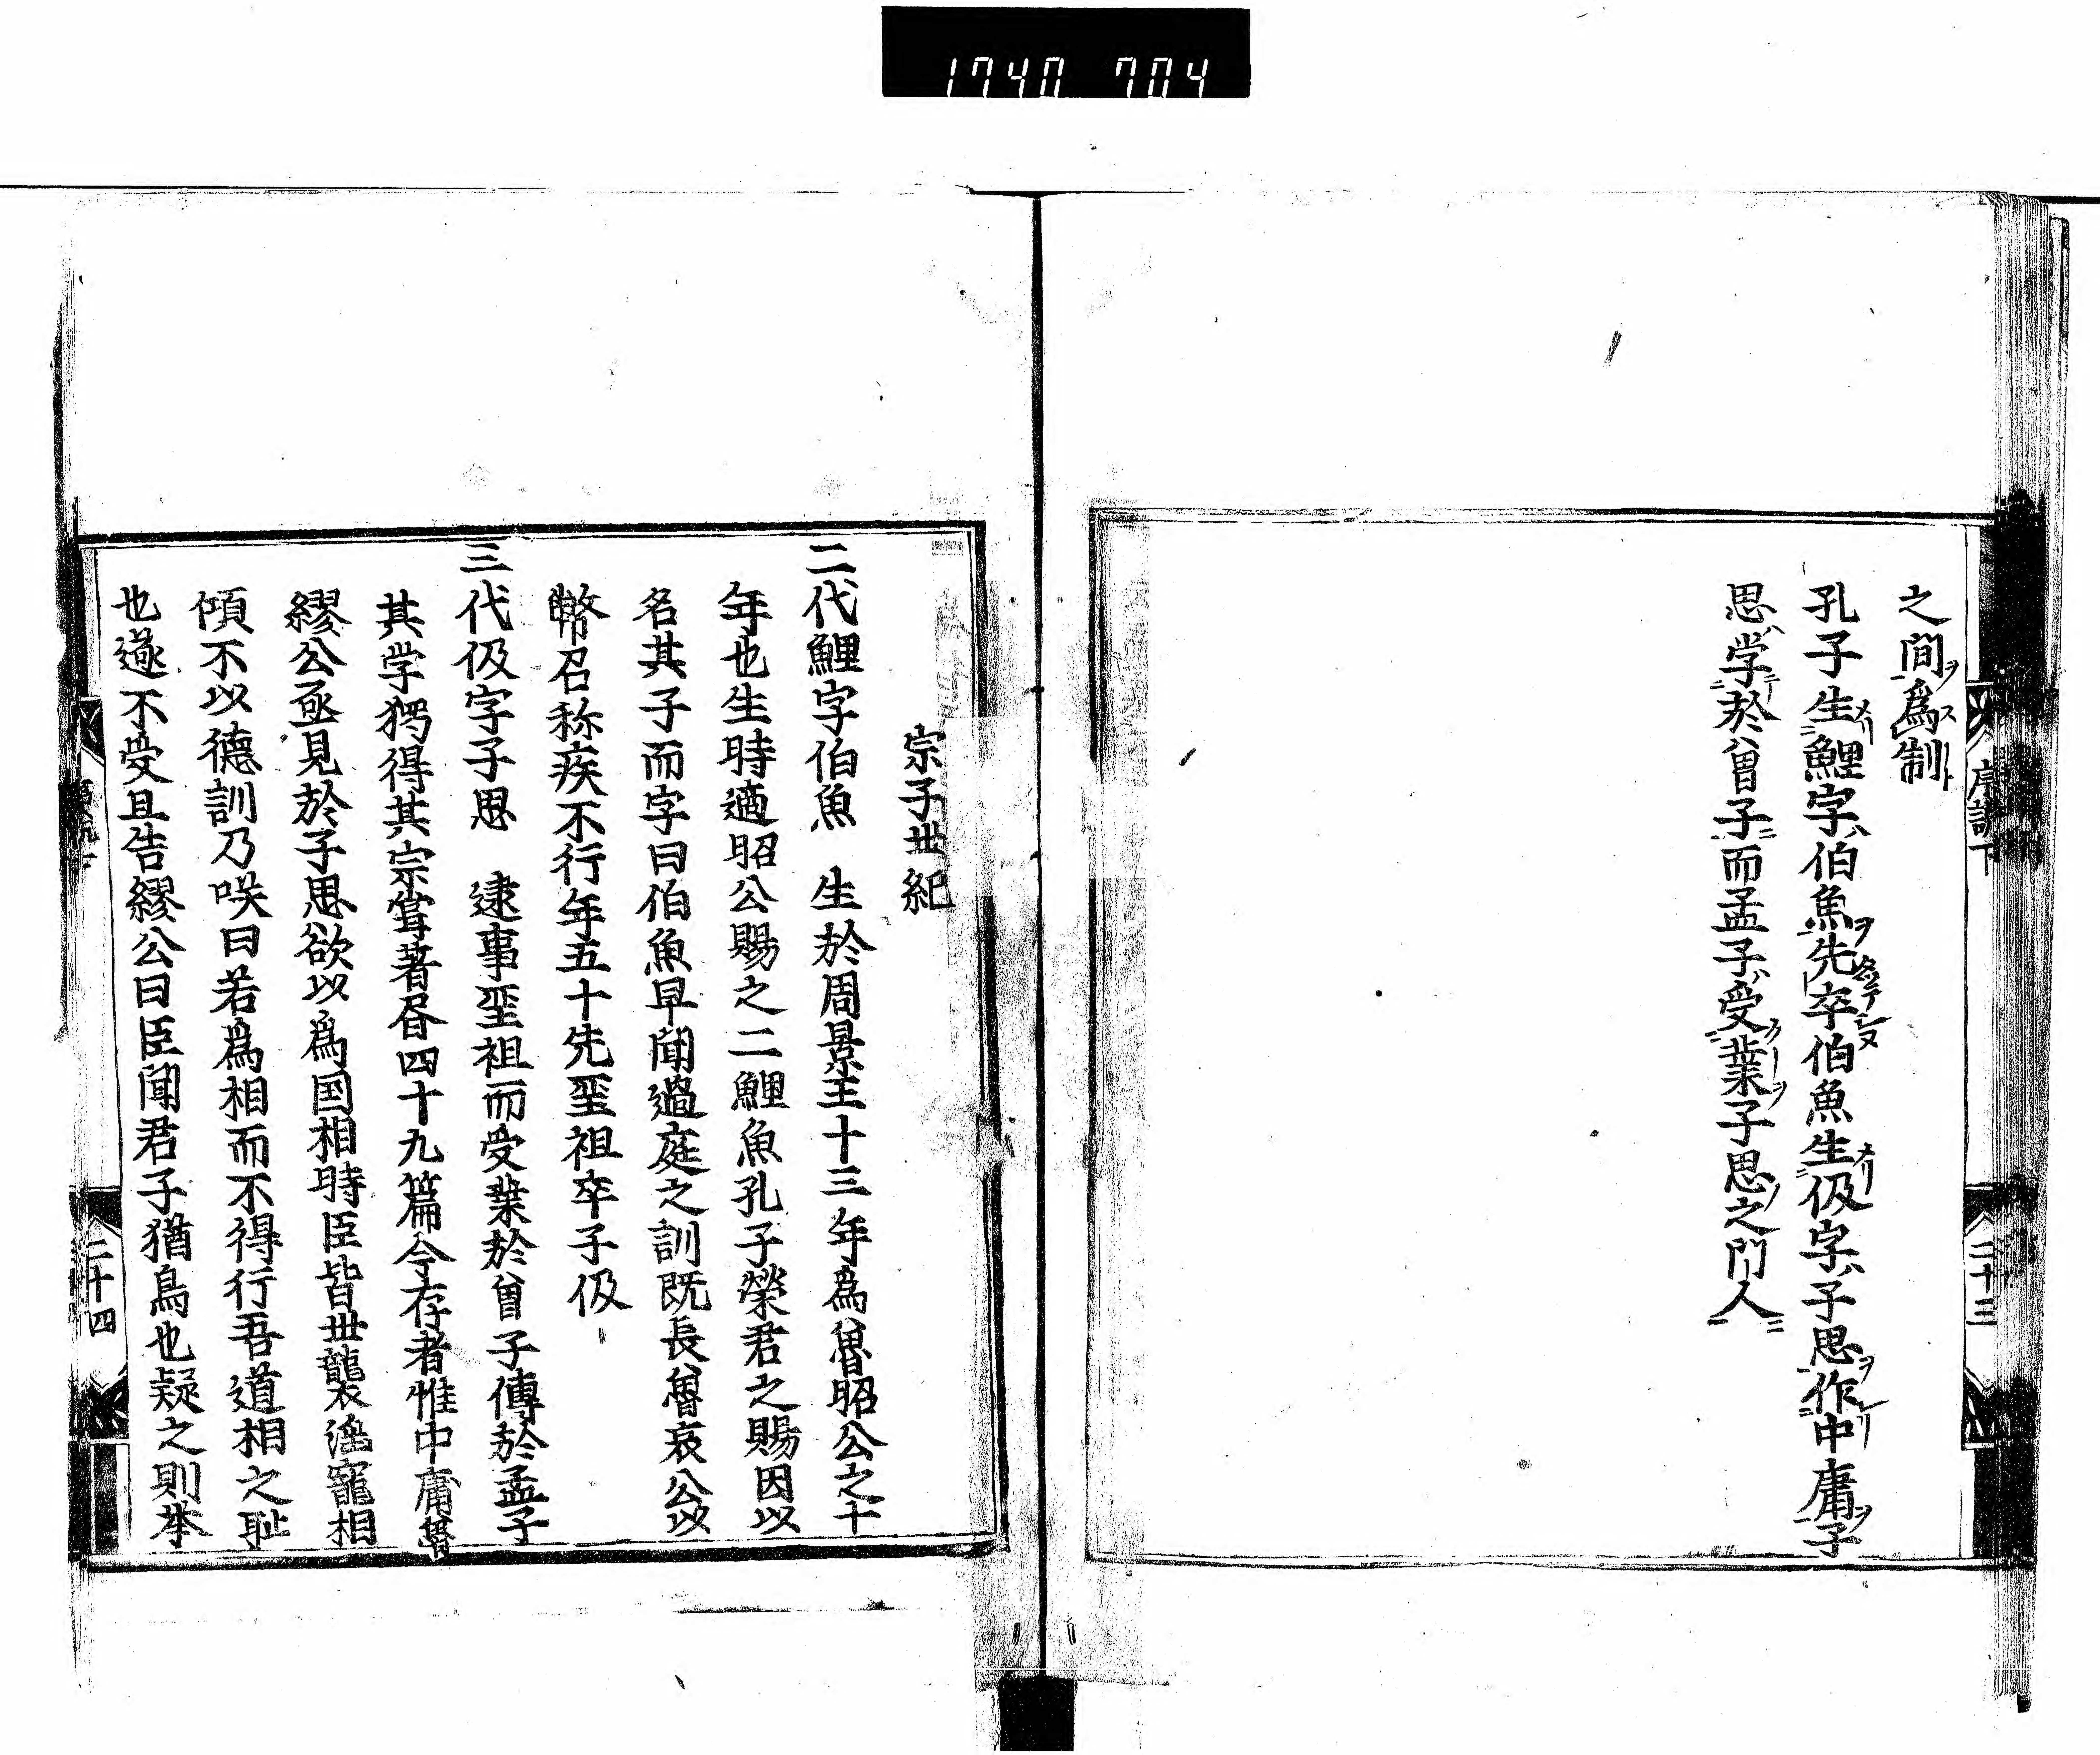 1740 704
序説下
二十三
之間為制
孔子生鯉字伯魚先卒伯魚生伋字子思作中庸子
思学於曾子而孟子受業子思之門人
宗子丗紀
二代鯉字伯魚 生於周景王十三年為魯昭公之十
年也生時適昭公賜之二鯉魚孔子榮君之賜因以
名其子而字曰伯魚早聞過庭之訓既長魯哀公以
幣召称疾不行年五十先聖祖卒子伋
三代伋字子思 逮事聖祖而受業於曾子傳於孟子
其学獨得其宗甞著昏四十九篇今存者惟中庸魯
繆公亟見於子思欲以為国相時臣皆丗襲淫寵相
傾不以德訓乃咲曰若為相而不得行吾道相之恥
也遂不受且告繆公曰臣聞君子猶鳥也疑之則举
二十四